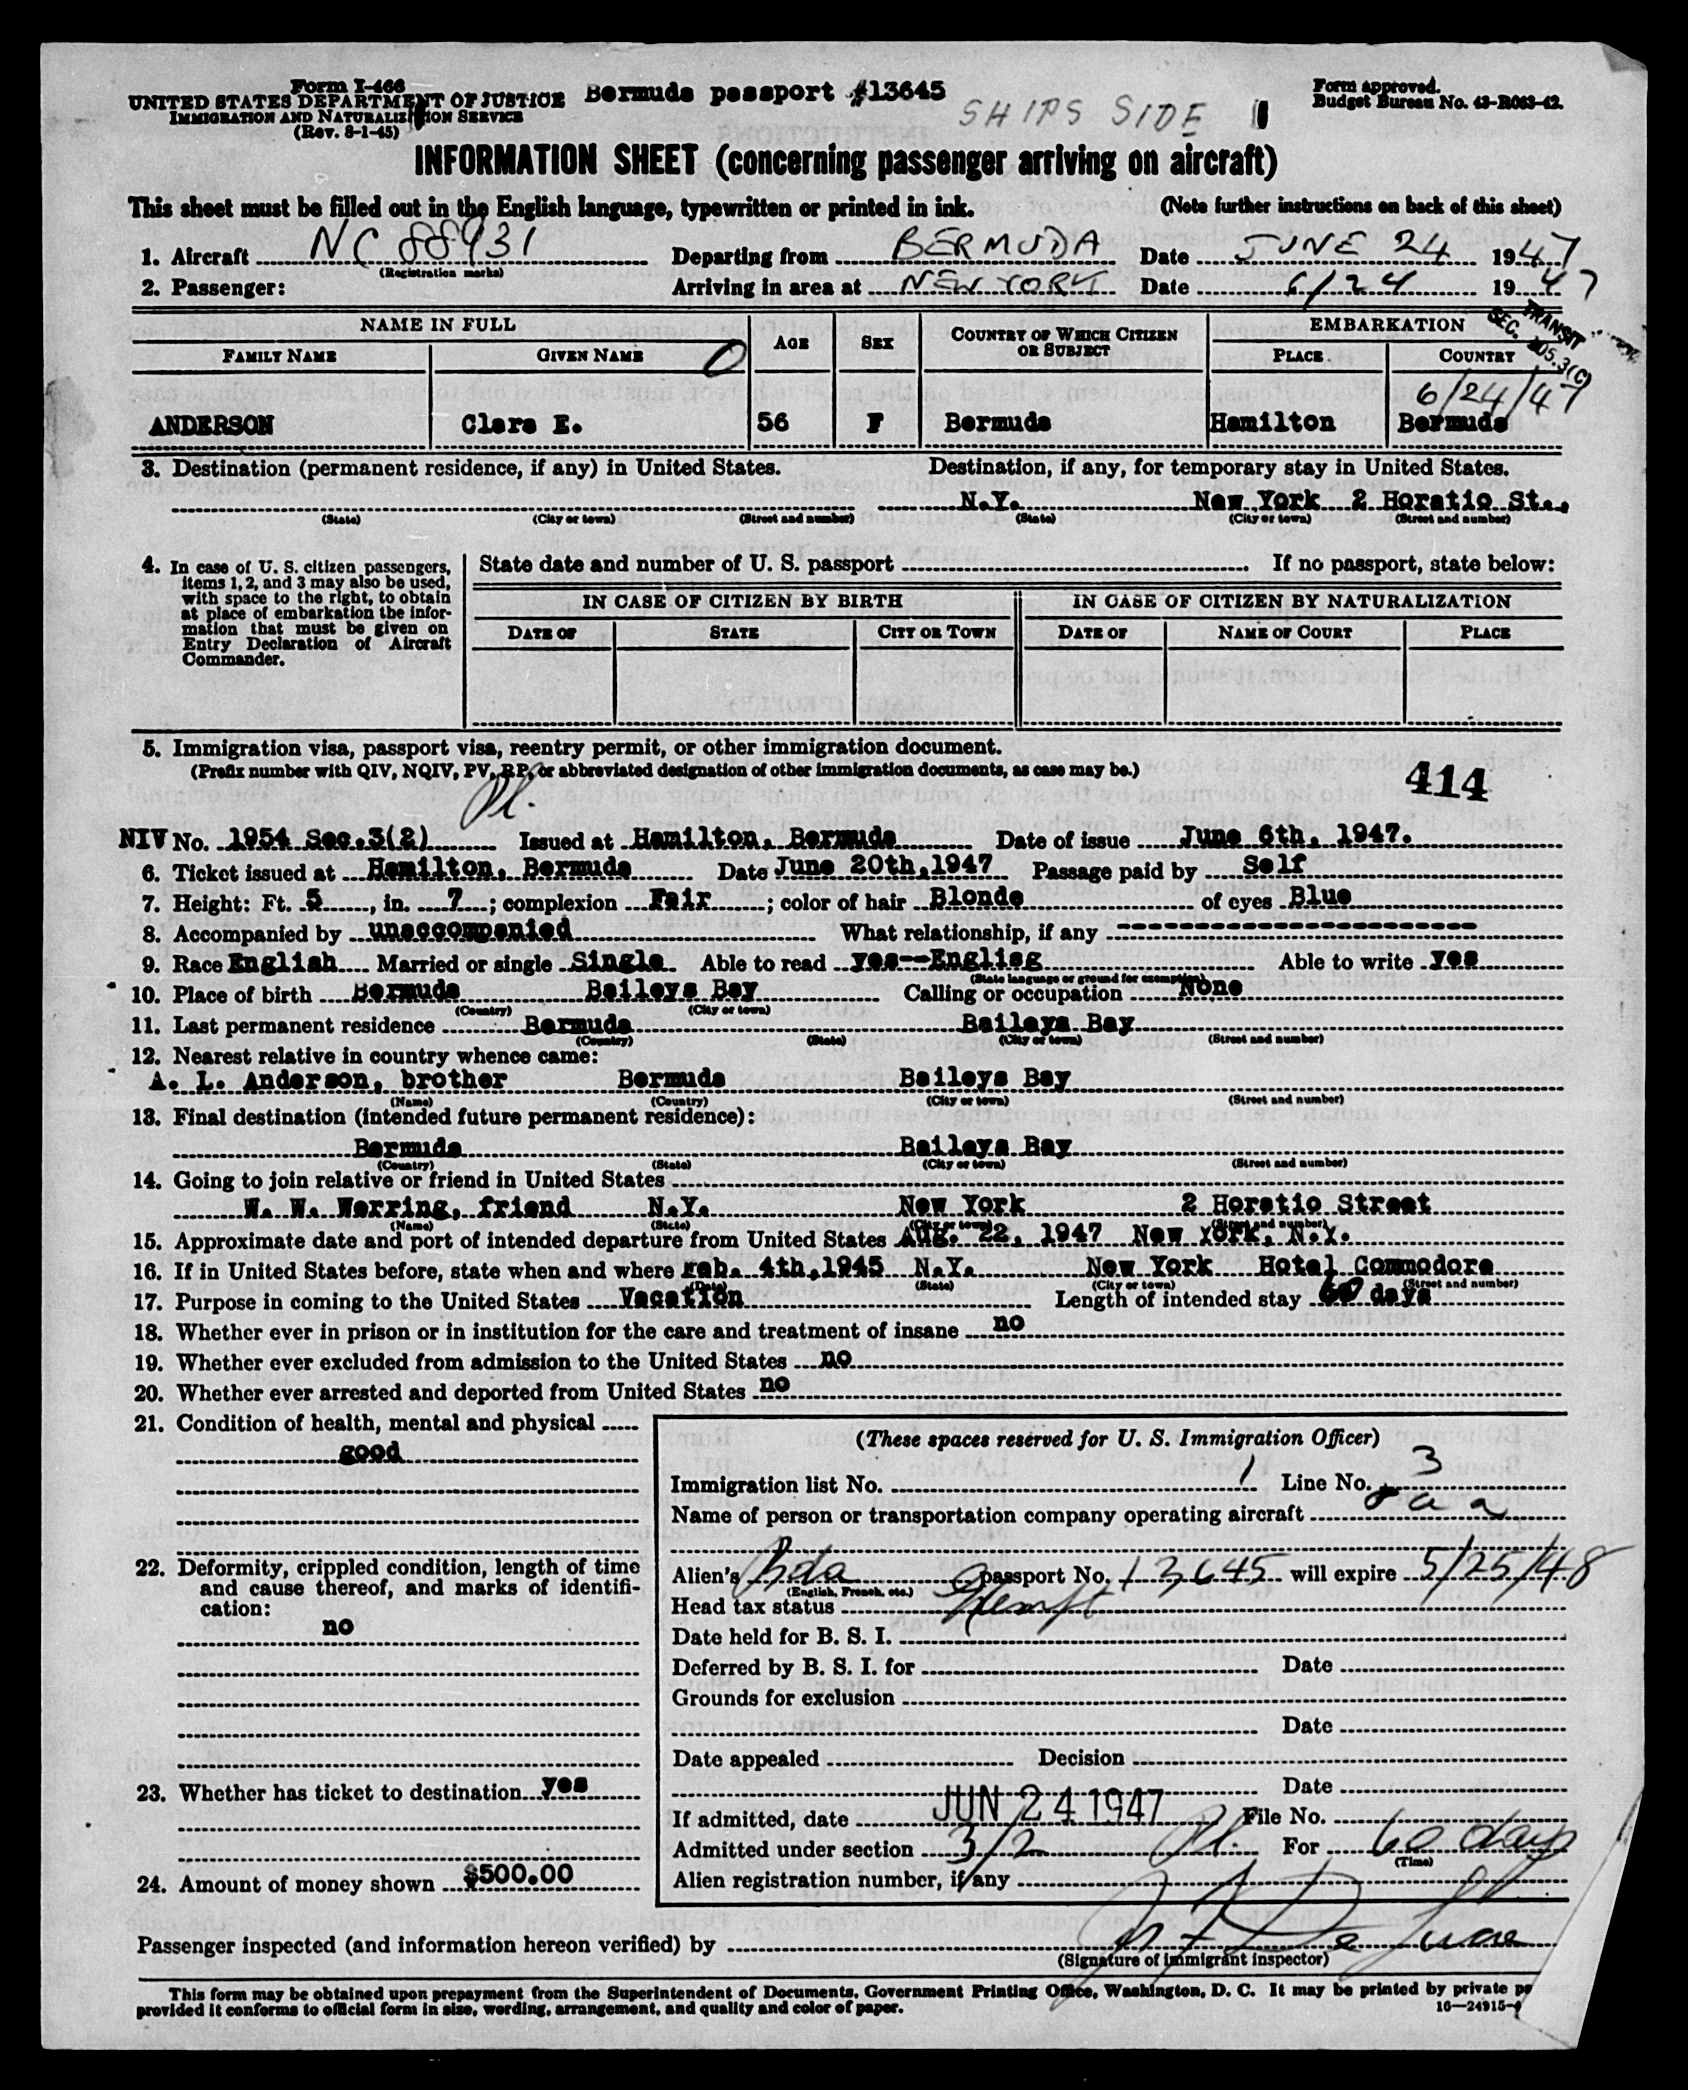 Form I-466
UNITED STATES DEPARTMENT OF JUSTICE Bermuda passport #13645 Form approved.
IMMIGRATION AND NATURALIZATION SERVICE SHIPS SIDE Budget Bureau No. 43-R063-42.
(Rev. 8-1-45)
INFORMATION SHEET (concerning passenger arriving on aircraft)
This sheet must be filled out in the English language, typewritten or printed in ink. (Note further instructions on back of this sheet)
1. Aircraft NC 88931 Departing from BERMUDA Date JUNE 24 1947
(Registration marks)
2. Passenger: Arriving in area at NEW YORK Date 6/24 1947
NAME IN FULL AGE SEX COUNTRY OF WHICH CITIZEN OR SUBJECT EMBARKATION TRANSIT
FAMILY NAME GIVEN NAME O PLACE COUNTRY SEC. 105.3(C)
6/24/47
ANDERSON Clara E. 56 F Bermuda Hamilton Bermuda
3. Destination (permanent residence, if any) in United States. Destination, if any, for temporary stay in United States.
N.Y. New York 2 Horatio St.,
(State) (City or town) (Street and number) (State) (City or town) (Street and number)
4. In case of U. S. citizen passengers, items 1, 2, and 3 may also be used, with space to the right, to obtain at place of embarkation the information that must be given on Entry Declaration of Aircraft Commander.
State date and number of U. S. passport If no passport, state below:
IN CASE OF CITIZEN BY BIRTH IN CASE OF CITIZEN BY NATURALIZATION
DATE OF STATE CITY OR TOWN DATE OF NAME OF COURT PLACE
5. Immigration visa, passport visa, reentry permit, or other immigration document.
(Prefix number with QIV, NQIV, PV, RP, or abbreviated designation of other immigration documents, as case may be.) 414
NIV No. 1954 Sec.3(2) Issued at Hamilton, Bermuda Date of issue June 6th, 1947.
6. Ticket issued at Hamilton, Bermuda Date June 20th,1947 Passage paid by Self
7. Height: Ft. 5, in. 7; complexion Fair; color of hair Blonde of eyes Blue
8. Accompanied by unaccompanied What relationship, if any ----------
9. Race English Married or single Single Able to read yes--Englisg Able to write Yes
(State language or ground for exemption)
10. Place of birth Bermuda Baileys Bay Calling or occupation None
(Country) (City or town)
11. Last permanent residence Bermuda Baileys Bay
(Country) (State) (City or town) (Street and number)
12. Nearest relative in country whence came:
A. L. Anderson, brother Bermuda Baileys Bay
(Name) (Country) (City or town) (Street and number)
13. Final destination (intended future permanent residence):
Bermuda Baileys Bay
(Country) (State) (City or town) (Street and number)
14. Going to join relative or friend in United States
W. W. Werring, friend N.Y. New York 2 Horatio Street
(Name) (State) (City or town) (Street and number)
15. Approximate date and port of intended departure from United States Aug. 22, 1947 New York, N.Y.
16. If in United States before, state when and where Feb. 4th,1945 N.Y. New York Hotel Commodore
(Date) (State) (City or town) (Street and number)
17. Purpose in coming to the United States Vacation Length of intended stay 60 days
18. Whether ever in prison or in institution for the care and treatment of insane no
19. Whether ever excluded from admission to the United States no
20. Whether ever arrested and deported from United States no
21. Condition of health, mental and physical
good
22. Deformity, crippled condition, length of time and cause thereof, and marks of identification:
no
23. Whether has ticket to destination yes
24. Amount of money shown $500.00
(These spaces reserved for U. S. Immigration Officer)
Immigration list No. 1 Line No. 3
Name of person or transportation company operating aircraft
Alien's Bda passport No. 13645 will expire 5/25/48
(English, French, etc.)
Head tax status Exempt
Date held for B. S. I.
Deferred by B. S. I. for Date
Grounds for exclusion
Date
Date appealed Decision
Date
If admitted, date JUN 24 1947 File No.
Admitted under section 3/2 Pl. For 60 days
(Time)
Alien registration number, if any
Passenger inspected (and information hereon verified) by
(Signature of immigrant inspector)
This form may be obtained upon prepayment from the Superintendent of Documents, Government Printing Office, Washington, D. C. It may be printed by private
provided it conforms to official form in size, wording, arrangement, and quality and color of paper. 16—24915-